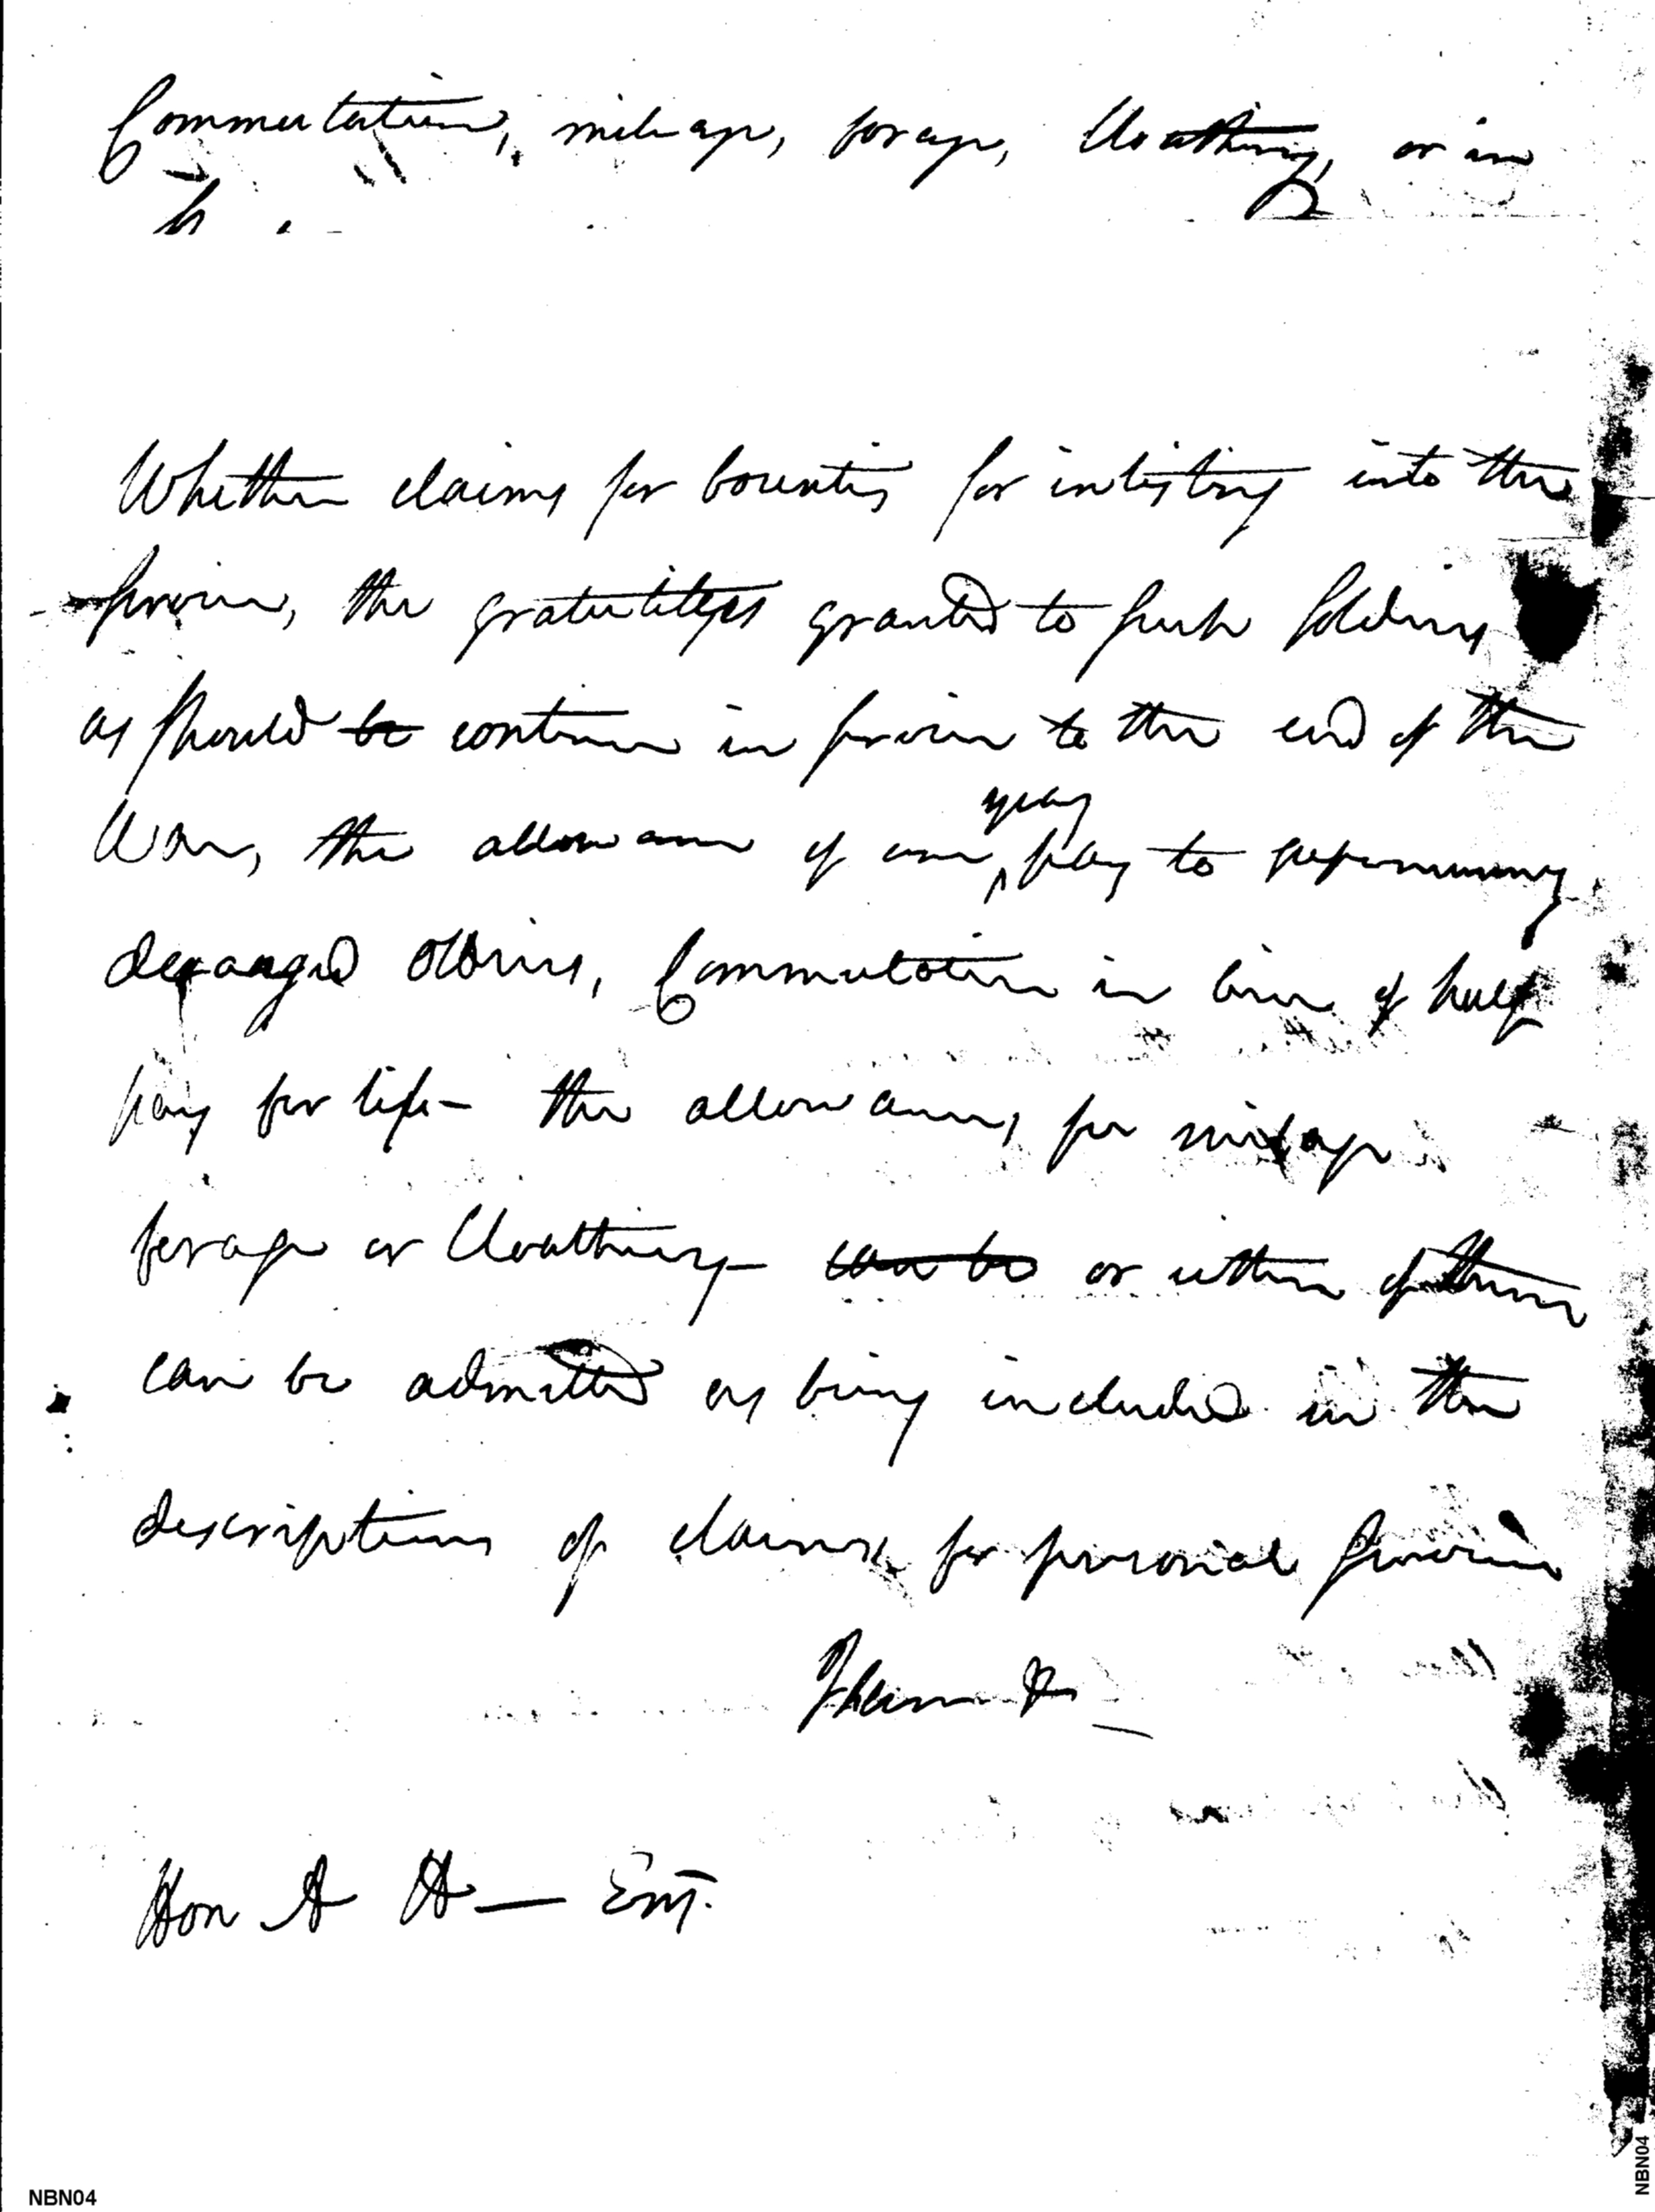 Commutation, mileage, forage, Cloathing, or in
Whether claims for bounties for inlisting into the
service, the gratuities granted to such soldiers
as should be continue in service to the end of the
War, the allowance of one years pay to supernumery
deranged Officers, Commutation in lieu of half
pay for life - the allowances for mileage
forage or Cloathing - can be or either of them
can be admitted as being included in the
descriptions of claims for personal services
I have &
Hon A H — Esqr.
NBN04
NBN04